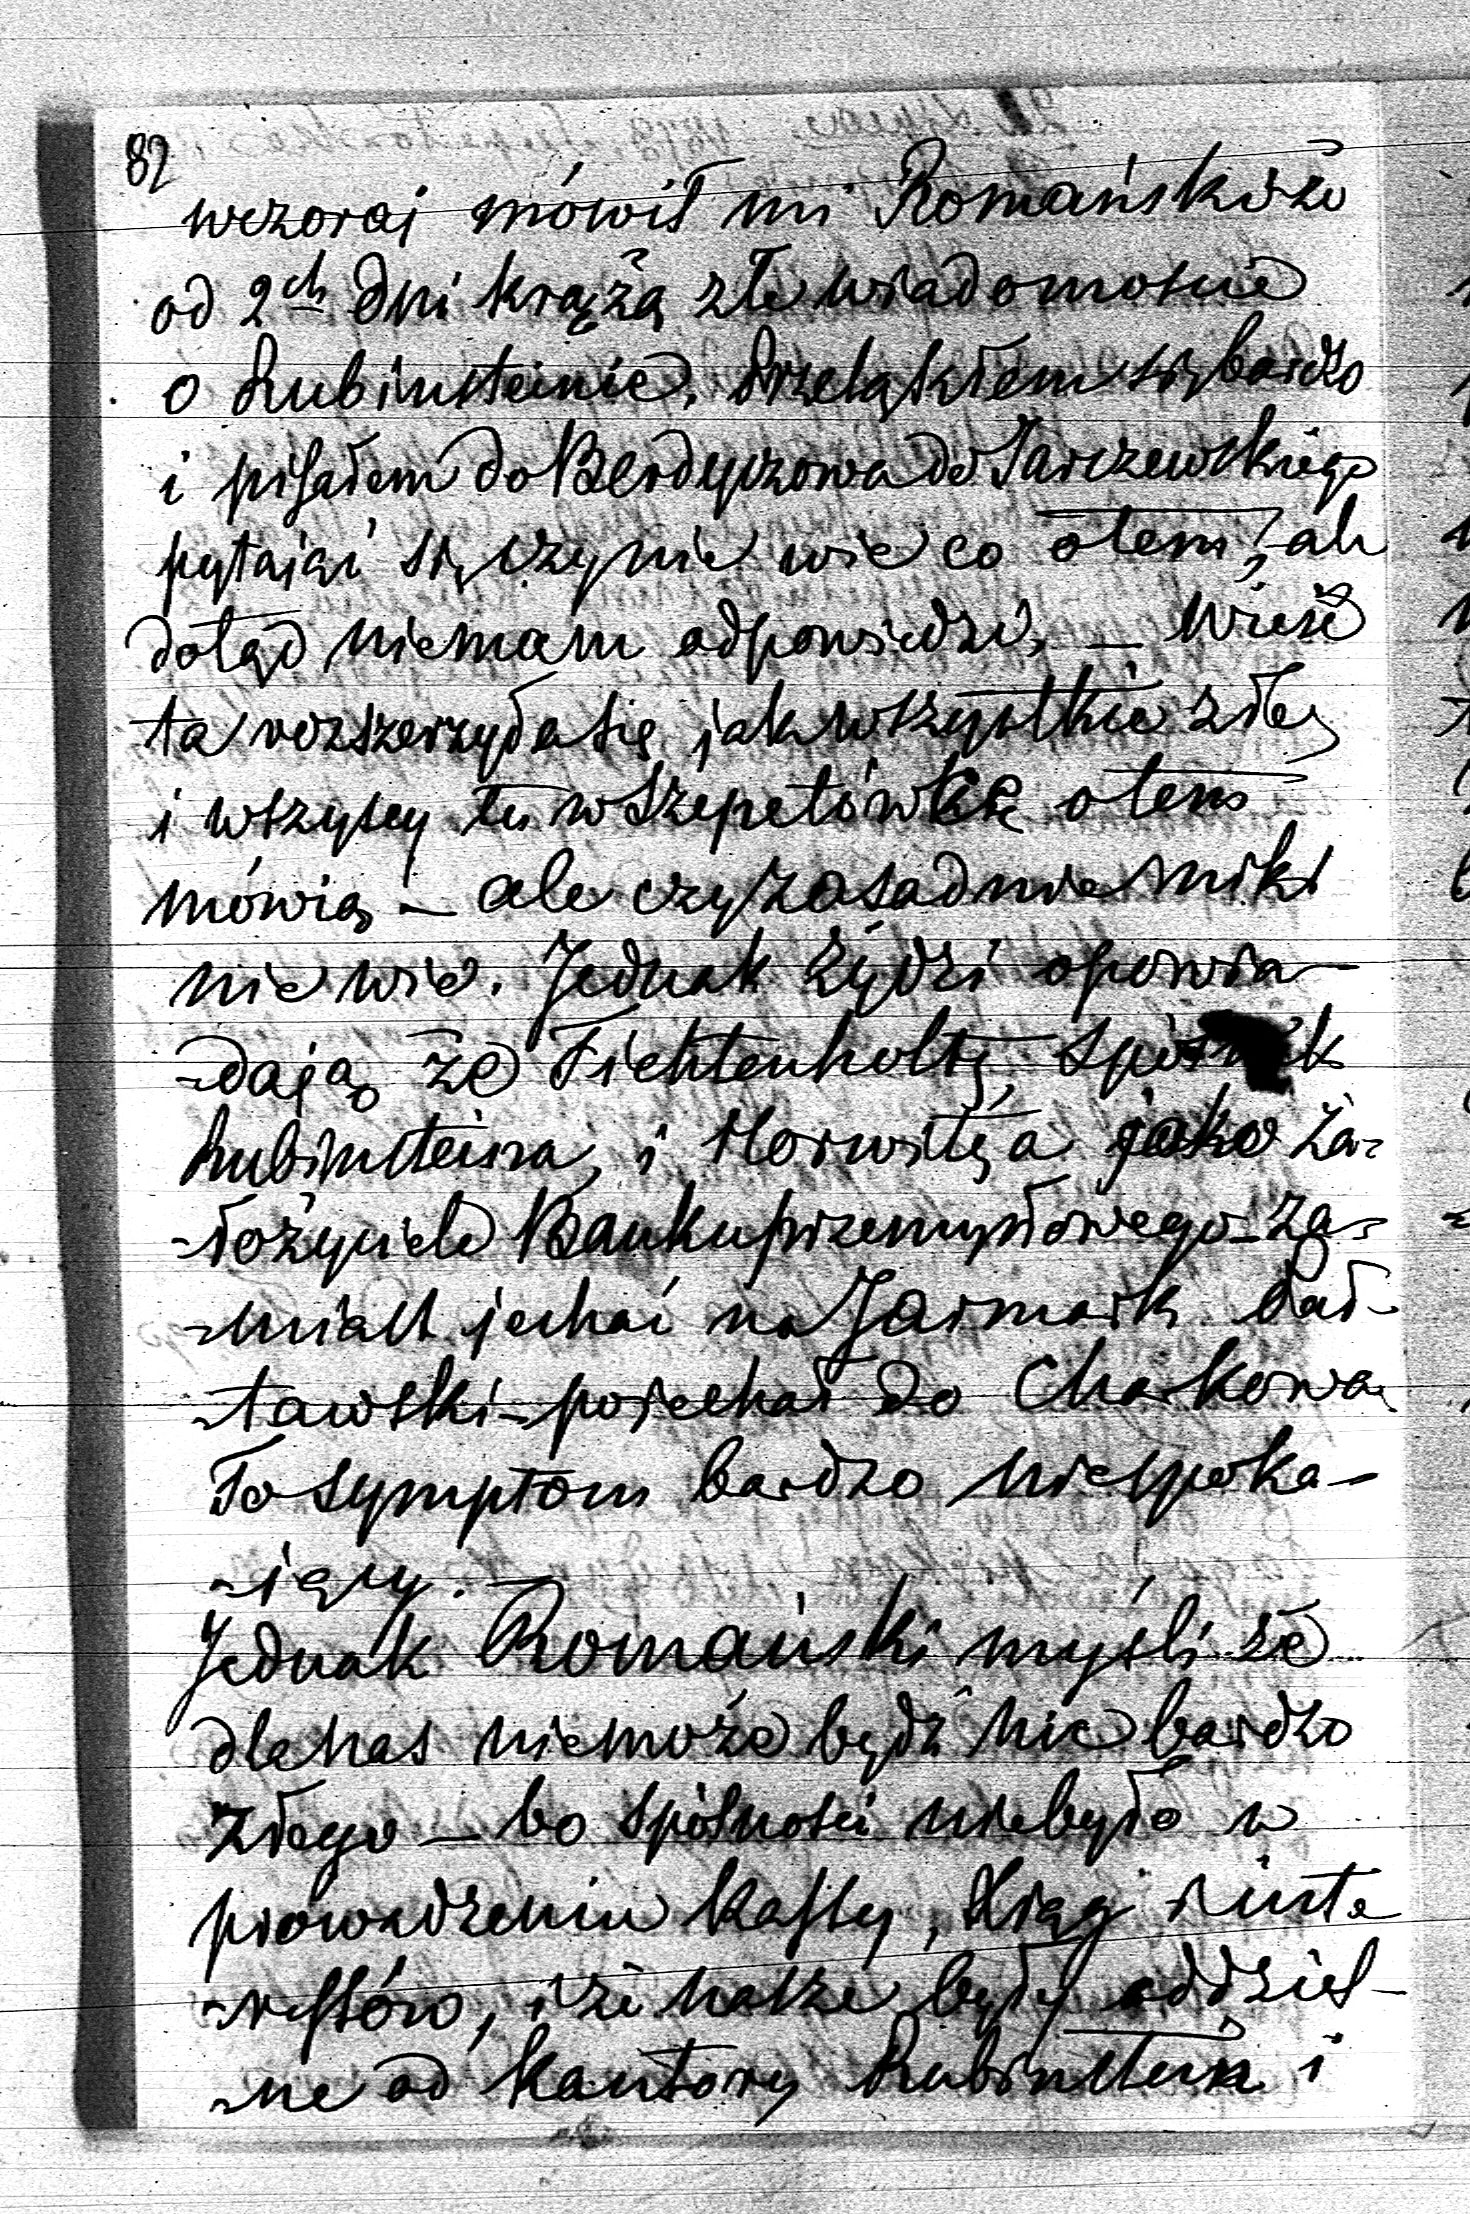 82
wczoraj mówił mi Romański że
od 2ch dni krążą złe wiadomoście
o Rubinsteinie, Przeląkłem się bardzo
i pisałem do Berdyczowa do Jarczewskiego
pytając się czy nie wie co o tem, ale
dotąd niemam odpowiedzi, – Wieść
ta rozszerzyła się jak wszystkie złe,
i wszyscy tu w Szepetówkę o tem
mówią – ale czy zasadnie nikt
nie wie. Jednak Żydzi opowia-
-dają że Fichtenholtz, spólnik
Rubinsteina, i Horwitza jako Za-
-łożyciele Banku przemysłowego – za-
-miast jechać na Jarmark Poł-
-tawski – pojechał do Charkowa
To symptom bardzo niespoka-
-jący.
Jednak Romański myśli że
dla nas niemoże bydź nic bardzo
złego – bo spólności niebyło w
prowadzeniu kassy, Xiąg i inte
-ressów, i że nasze były oddziel-
-ne od kantory Rubinstein i